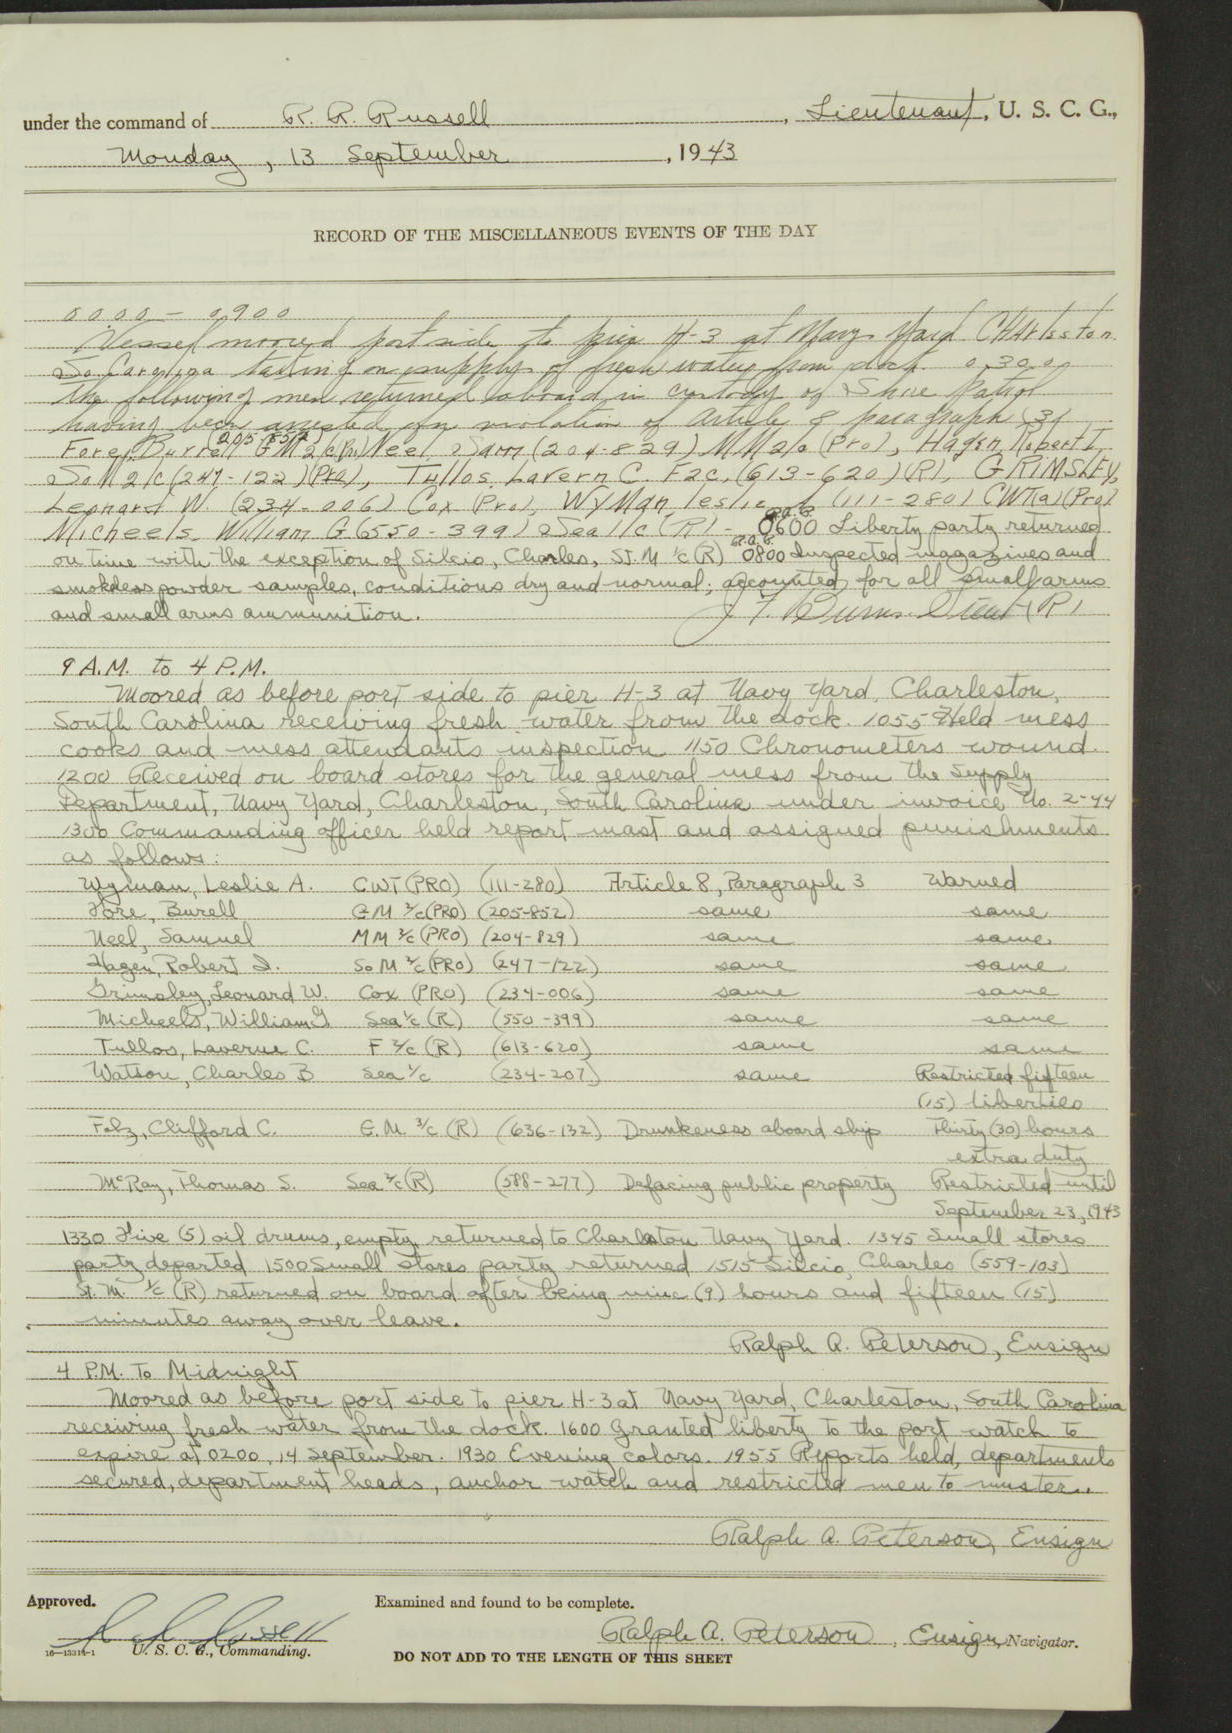 under the command of R. R. Russell, Lieutenant, U. S. C. G.,
Monday, 13 September, 1943
RECORD OF THE MISCELLANEOUS EVENTS OF THE DAY
0000 - 0900
Vessel moored port side to pier H-3 at Navy Yard CHArleston
So. Carolina taking on supply of fresh water from dock. 0300
the following men returned aboard in custody of Shore Patrol
having been arrested for violation of Article 8 paragraph 3;
(205-852)
Fore, Burrell GM2c(Pr) Neel, Sam (204-829) MM2c (Pro), Hagen Robert I,
SoM2/c (247-122) (Pro), Tullos, Lavern C. F2c, (613-620) (R), GRIMSLEY,
Leonard W. (234-006) Cox (Pro), WyMan, Leslie (111-280) CWT(a) (Pro)
Micheels, William G (550-399) Sea1/c (R) - 0600 Liberty party returned
on time with the exception of Silcio, Charles, St. M 1/c (R) 0800 Inspected magazines and
smokless powder samples, conditions dry and normal; accounted for all small arms
and small arms ammunition.
J. F. Burns. Lieut (R)
9 A.M. to 4 P.M.
Moored as before port side to pier H-3 at Navy Yard, Charleston,
South Carolina receiving fresh water from the dock. 1055 Held mess
cooks and mess attendants inspection 1150 Chronometers wound.
1200 Received on board stores for the general mess from the Supply
Department, Navy Yard, Charleston, South Carolina under invoice No. 2-44
1300 Commanding officer held report mast and assigned punishments
as follows:
Wyman, Leslie A. CWT (PRO) (111-280) Article 8, Paragraph 3 Warned
Fore, Burell GM 2/c (PRO) (205-852) same same
Neel, Samuel MM 2/c (PRO) (204-829) same same
Hagen, Robert I. SoM 2/c (PRO) (247-122) same same
Grimsley, Leonard W. Cox (PRO) (234-006) same same
Micheels, William G Sea 1/c (R) (550-399) same same
Tullos, Laverne C. F 2/c (R) (613-620) same same
Watson, Charles B Sea 1/c (234-207) same Restricted fifteen
(15) liberties
Folz, Clifford C. G.M. 3/c (R) (636-132) Drunkeness aboard ship Thirty (30) hours
extra duty
McRay, Thomas S. Sea 2/c (R) (588-277) Defacing public property Restricted until
September 23, 1943
1330 Five (5) oil drums, empty returned to Charleston Navy Yard. 1345 Small stores
party departed 1500 Small stores party returned 1515 Silcio, Charles (559-103)
St. M. 1/c (R) returned on board after being nine (9) hours and fifteen (15)
minutes away over leave.
Ralph A. Peterson, Ensign
4 P.M. To Midnight
Moored as before port side to pier H-3 at Navy Yard, Charleston, South Carolina
receiving fresh water from the dock. 1600 Granted liberty to the port watch to
expire at 0200, 14 September. 1930 Evening colors. 1955 Reports held, departments
secured, department heads, anchor watch and restricted men to muster.
Ralph A. Peterson, Ensign
Approved.
Examined and found to be complete.
R. R. Russell
U. S. C. G., Commanding.
Ralph A. Peterson, Ensign Navigator.
16—13314-1
DO NOT ADD TO THE LENGTH OF THIS SHEET